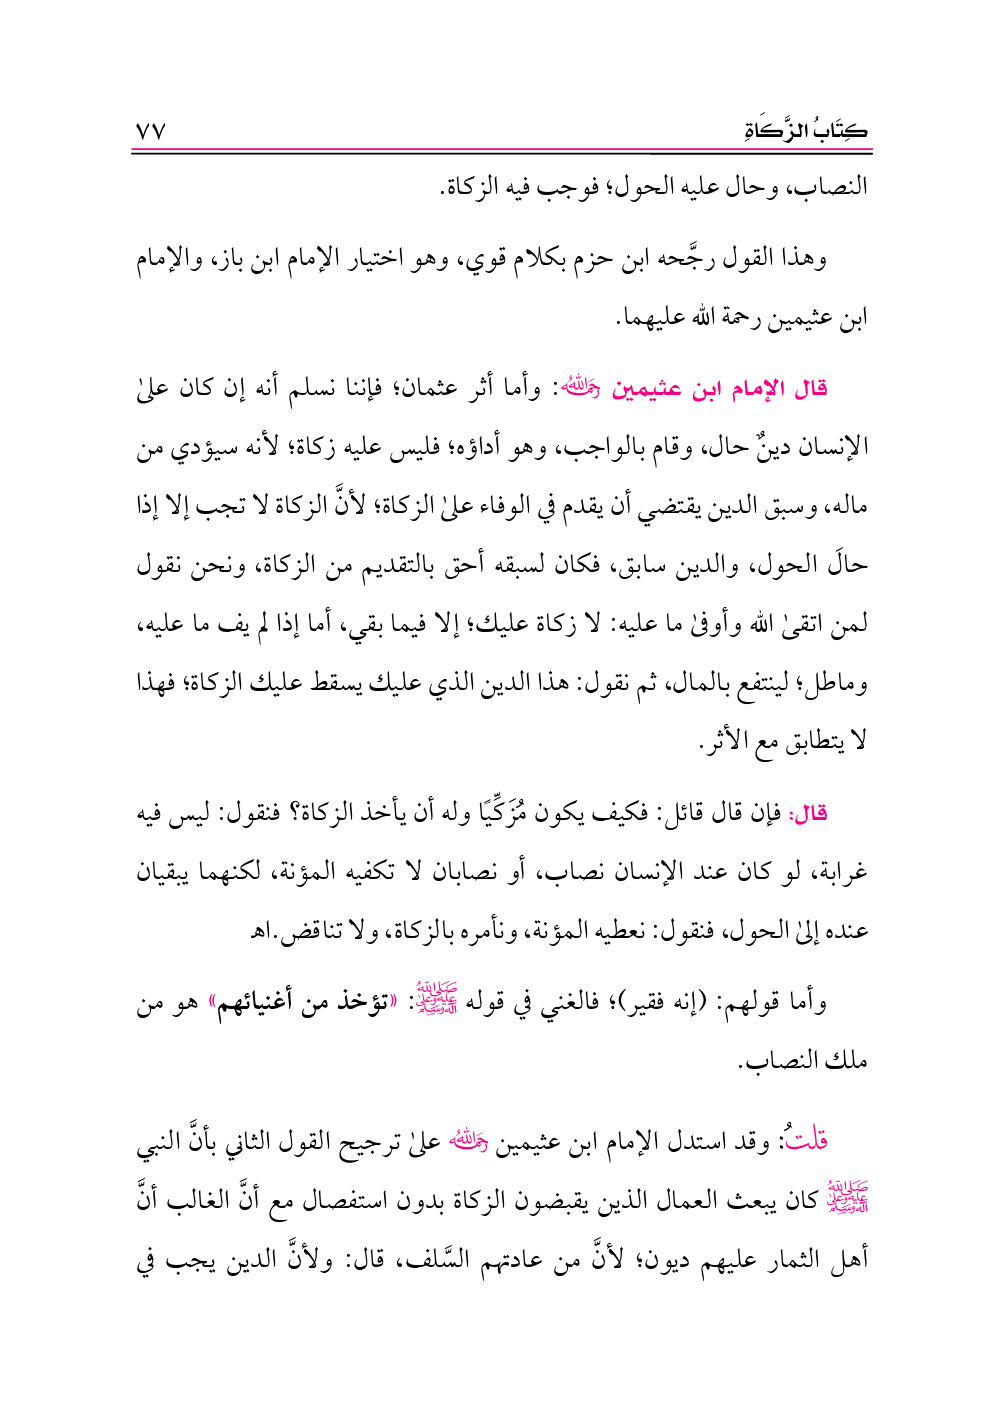 كِتَابُ الزَّكَاةِ ٧٧
النصاب، وحال عليه الحول؛ فوجب فيه الزكاة.
وهذا القول رجَّحه ابن حزم بكلام قوي، وهو اختيار الإمام ابن باز، والإمام
ابن عثيمين رحمة الله عليهما.
قال الإمام ابن عثيمين رحمه الله: وأما أثر عثمان؛ فإننا نسلم أنه إن كان علىٰ
الإنسان دينٌ حال، وقام بالواجب، وهو أداؤه؛ فليس عليه زكاة؛ لأنه سيؤدي من
ماله، وسبق الدين يقتضي أن يقدم في الوفاء علىٰ الزكاة؛ لأنَّ الزكاة لا تجب إلا إذا
حالَ الحول، والدين سابق، فكان لسبقه أحق بالتقديم من الزكاة، ونحن نقول
لمن اتقىٰ الله وأوفىٰ ما عليه: لا زكاة عليك؛ إلا فيما بقي، أما إذا لم يف ما عليه،
وماطل؛ لينتفع بالمال، ثم نقول: هذا الدين الذي عليك يسقط عليك الزكاة؛ فهذا
لا يتطابق مع الأثر.
قال: فإن قال قائل: فكيف يكون مُزَكِّيًا وله أن يأخذ الزكاة؟ فنقول: ليس فيه
غرابة، لو كان عند الإنسان نصاب، أو نصابان لا تكفيه المؤنة، لكنهما يبقيان
عنده إلىٰ الحول، فنقول: نعطيه المؤنة، ونأمره بالزكاة، ولا تناقض.اهـ
وأما قولهم: (إنه فقير)؛ فالغني في قوله ﷺ: «تؤخذ من أغنيائهم» هو من
ملك النصاب.
قلتُ: وقد استدل الإمام ابن عثيمين رحمه الله علىٰ ترجيح القول الثاني بأنَّ النبي
ﷺ كان يبعث العمال الذين يقبضون الزكاة بدون استفصال مع أنَّ الغالب أنَّ
أهل الثمار عليهم ديون؛ لأنَّ من عادتهم السَّلف، قال: ولأنَّ الدين يجب في